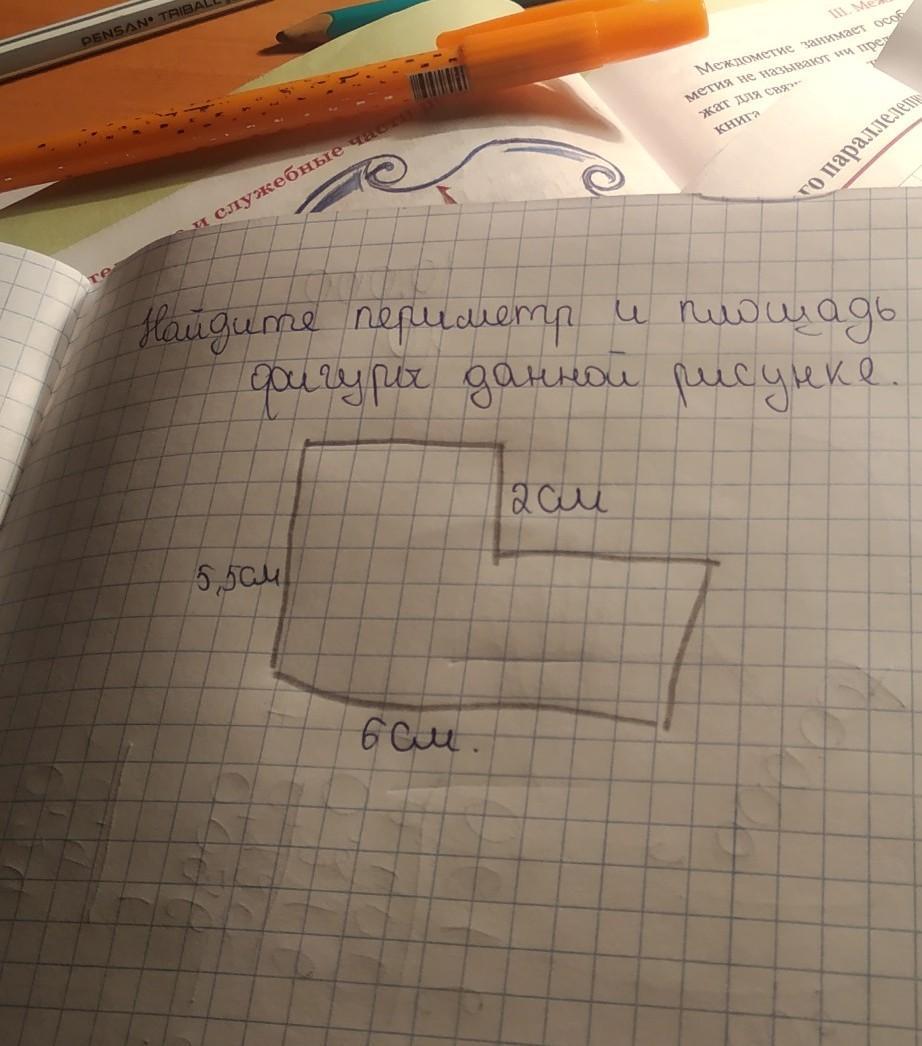 PENSAN® TRIBALL
III. Меж
Междометие занимает особ
метия не называют ни пред
жат для связ
книга
и служебные части р
го параллелепи
Найдите периметр и площадь
фигуры данной рисунке.
2см
5,5см
6см.